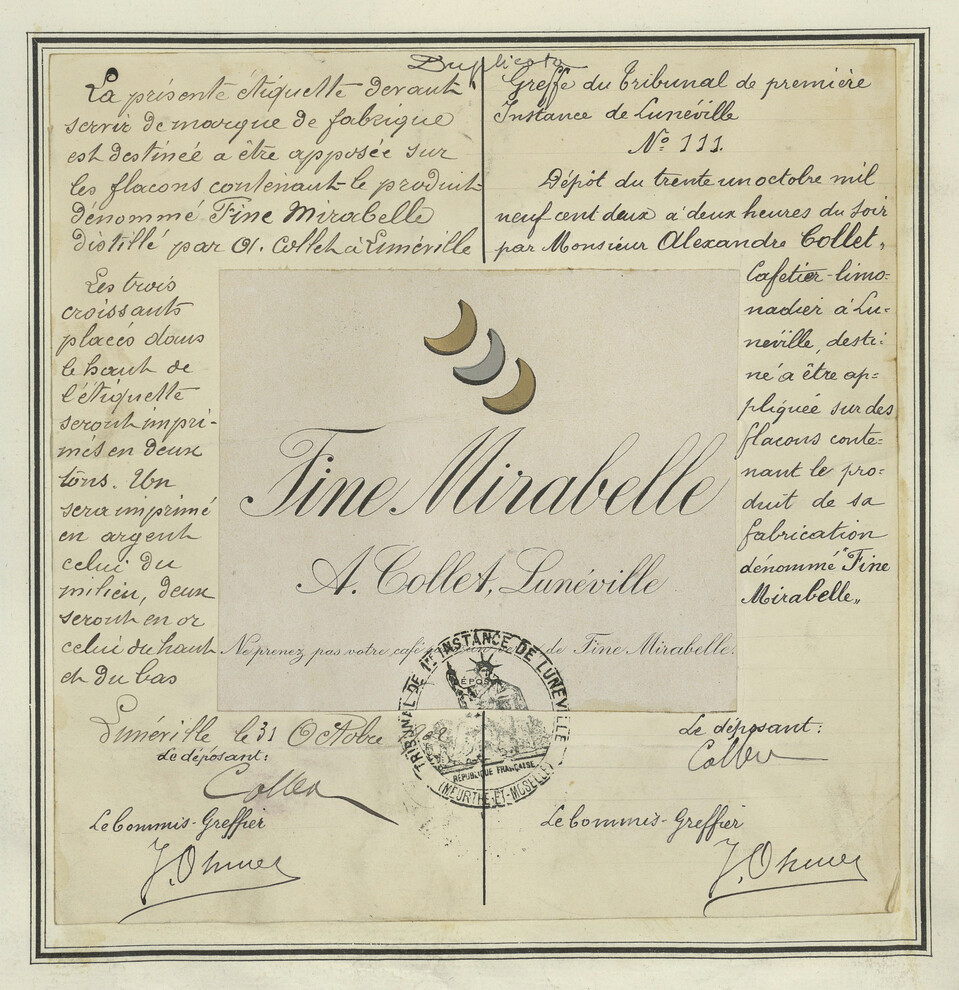 Duplicata
La présente étiquette devant
servir de marque de fabrique
est destinée a être apposée sur
les flacons contenant le produit
dénommé Fine Mirabelle
distillé par A. Collet à Lunéville
Les trois
croissants
placés dans
le haut de
l'étiquette
seront impri-
més en deux
tons. Un
sera imprimé
en argent
celui du
milieu, deux
seront en or
celui du haut
et du bas
Lunéville le 31 Octobre
Le déposant:
Collet
Le Commis-Greffier
Greffe du Tribunal de première
Instance de Lunéville
No 111.
Dépôt du trente un octobre mil
neuf cent deux à deux heures du soir
par Monsieur Alexandre Collet,
Cafetier-limo-
nadier à Lu-
néville, desti-
né a être ap-
pliquée sur des
flacons conte-
nant le pro-
duit de sa
fabrication
dénommé "Fine
Mirabelle"
Le déposant:
Collet
Le Commis-Greffier
Fine Mirabelle
A. Collet, Lunéville
Ne prenez pas votre café de Fine Mirabelle.
TRIBUNAL DE 1RE INSTANCE DE LUNEVILLE
RÉPUBLIQUE FRANÇAISE
(MEURTHE-ET-MOSELLE)